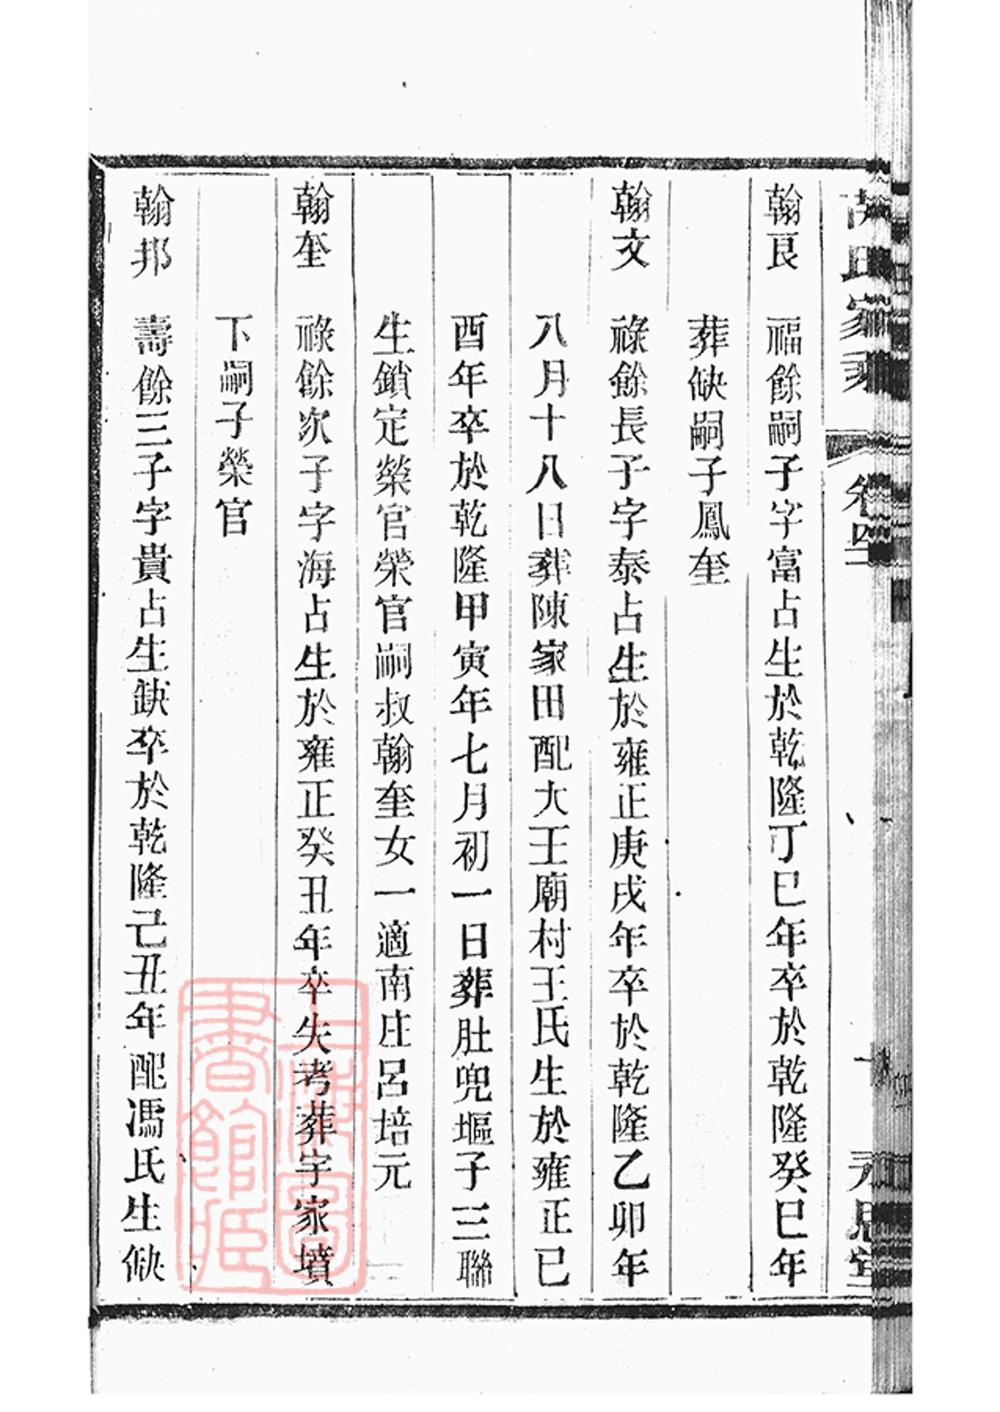 氏家乘
卷四
永思堂
翰良 福餘嗣子字富占生於乾隆丁巳年卒於乾隆癸巳年
葬缺嗣子鳳奎
翰文 祿餘長子字泰占生於雍正庚戌年卒於乾隆乙卯年
八月十八日葬陳家田配大王廟村王氏生於雍正已
酉年卒於乾隆甲寅年七月初一日葬肚兜塸子三聯
生鎖定榮官榮官嗣叔翰奎女一適南庄呂培元
翰奎 祿餘次子字海占生於雍正癸丑年卒失考葬宇家墳
下嗣子榮官
翰邦 壽餘三子字貴占生缺卒於乾隆己丑年配馮氏生缺
上海圖
書館藏